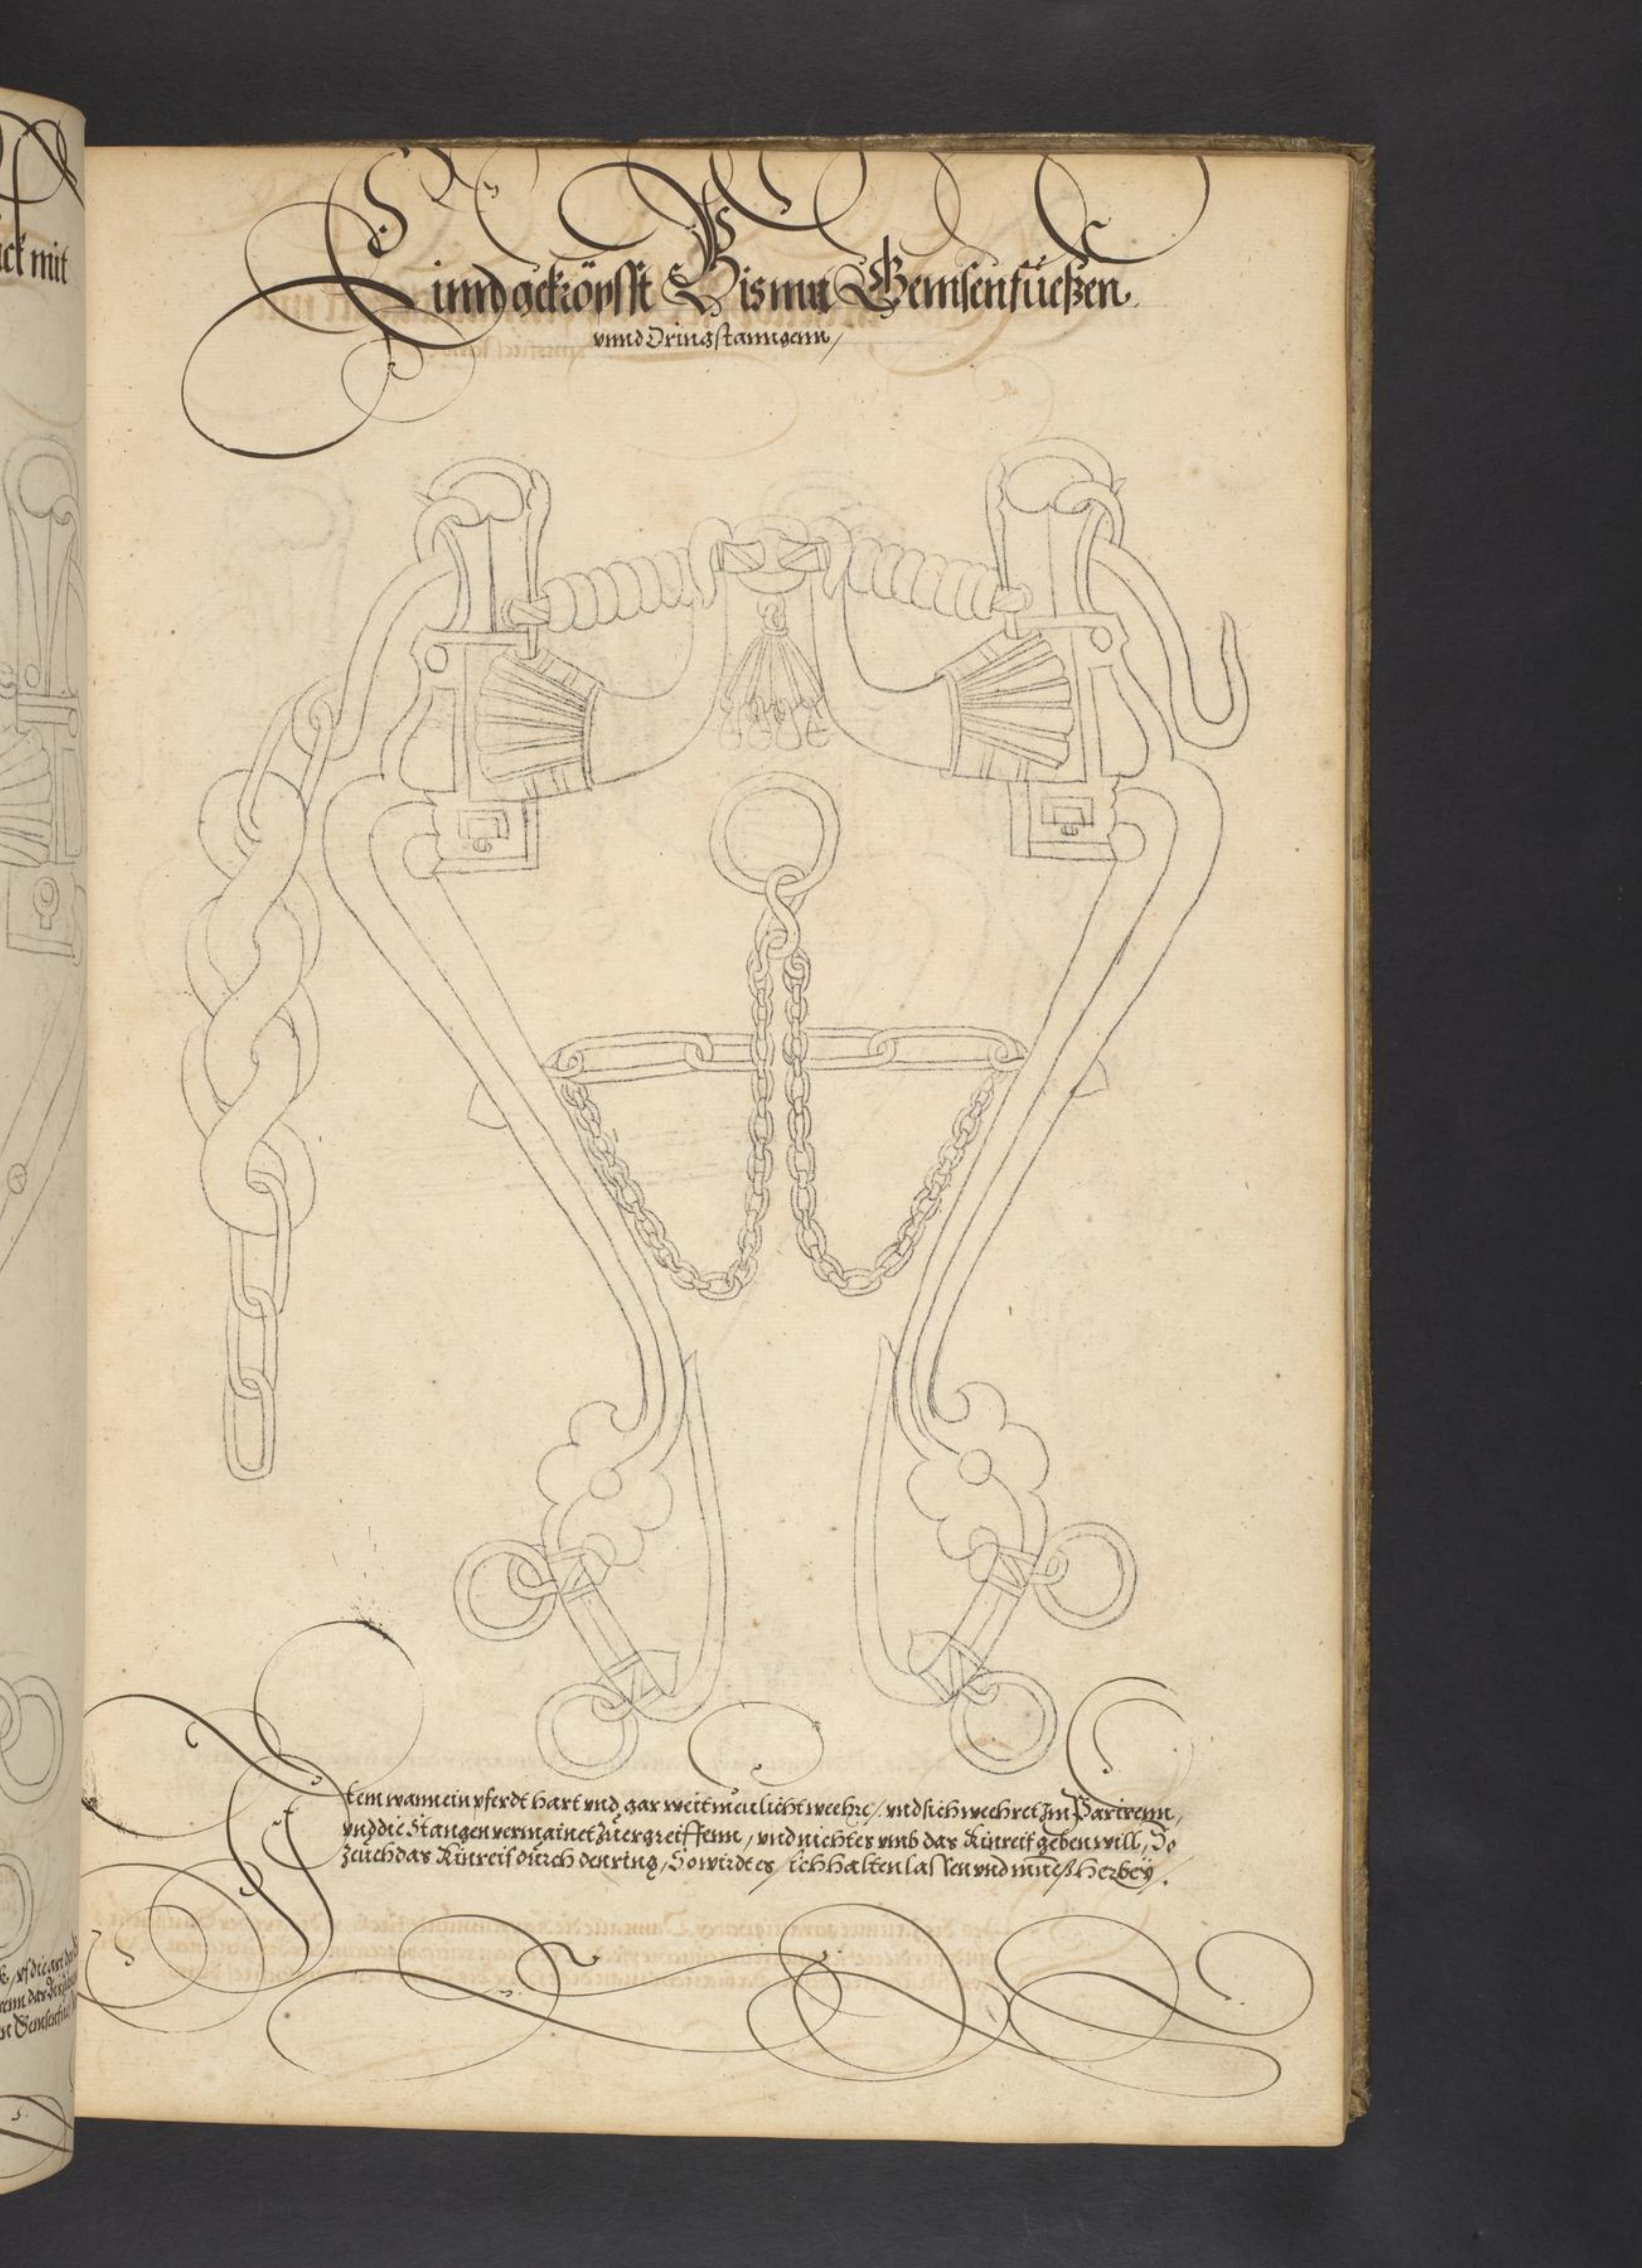 ck mit
Einnd gekröpfft Bis mit Gemsenfüeßen
vnnd Dringstanngenn /
Item wann ein pferdt hart vnd gar weit meulicht weehre / vnd sich weehret Im Parirenn,
vnd die Stangen vermainet zuergreiffenn, vnd nichtes vmb das Kinreif geben will, So
zeüch das Kinreif durch den ring, So wirdt es sich halten lassen vnd mueß herbeÿ.